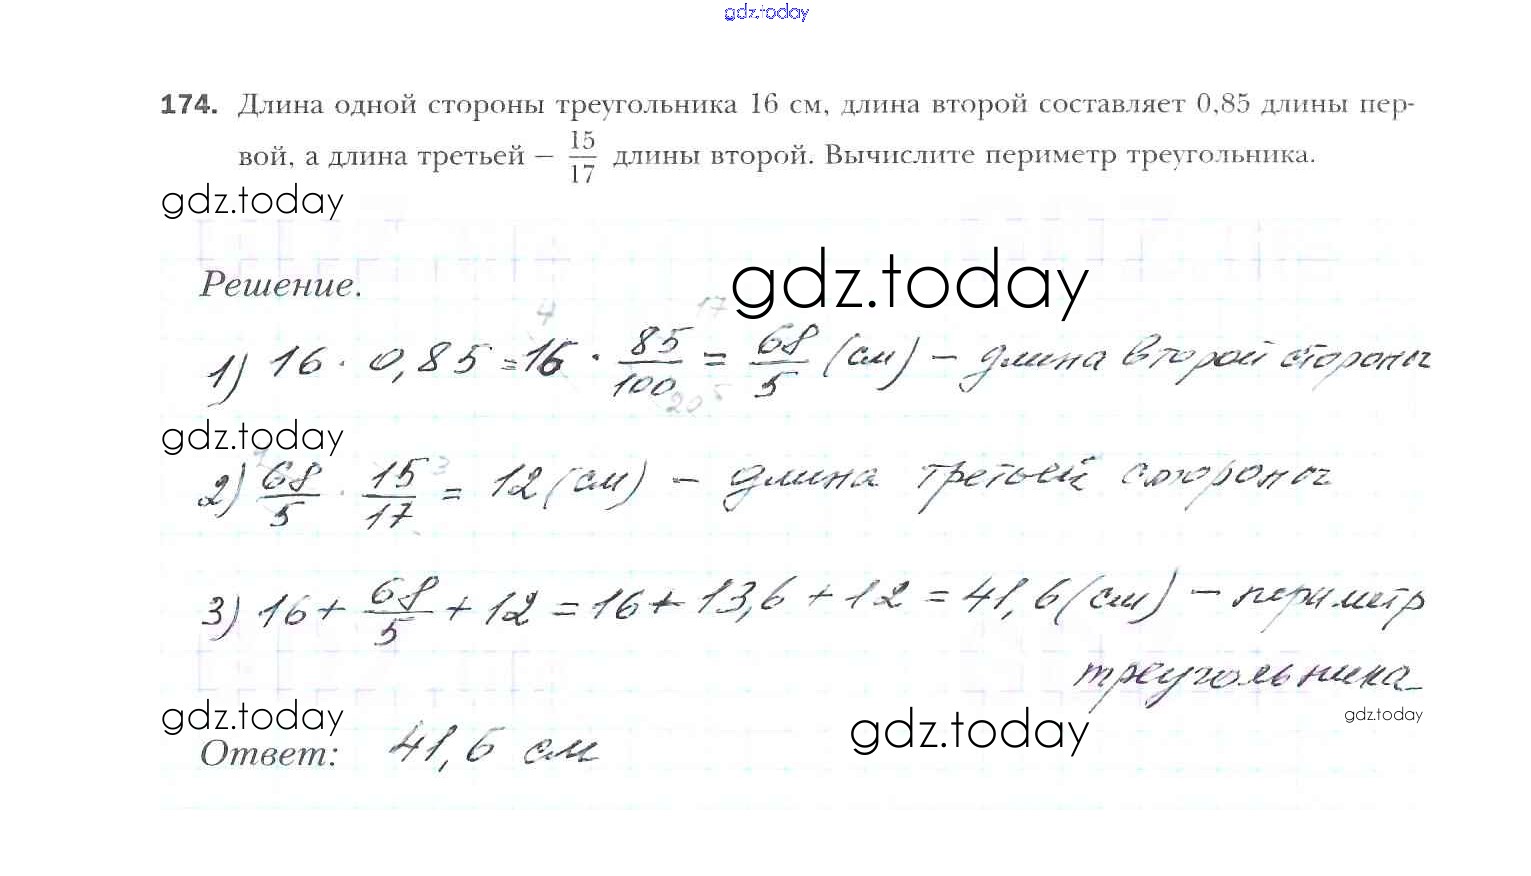 gdz.today
174. Длина одной стороны треугольника 16 см, длина второй составляет 0,85 длины пер-
вой, а длина третьей – 15/17 длины второй. Вычислите периметр треугольника.
gdz.today
Решение.
gdz.today
4 17
1) 16 · 0,85 = 16 · 85/100 = 68/5 (см) – длина второй стороны
20 5
gdz.today
2) 68/5 · 15/17 = 12 (см) – длина третьей стороны
3
3) 16 + 68/5 + 12 = 16 + 13,6 + 12 = 41,6 (см) – периметр
треугольника
gdz.today
gdz.today
gdz.today
Ответ: 41,6 см